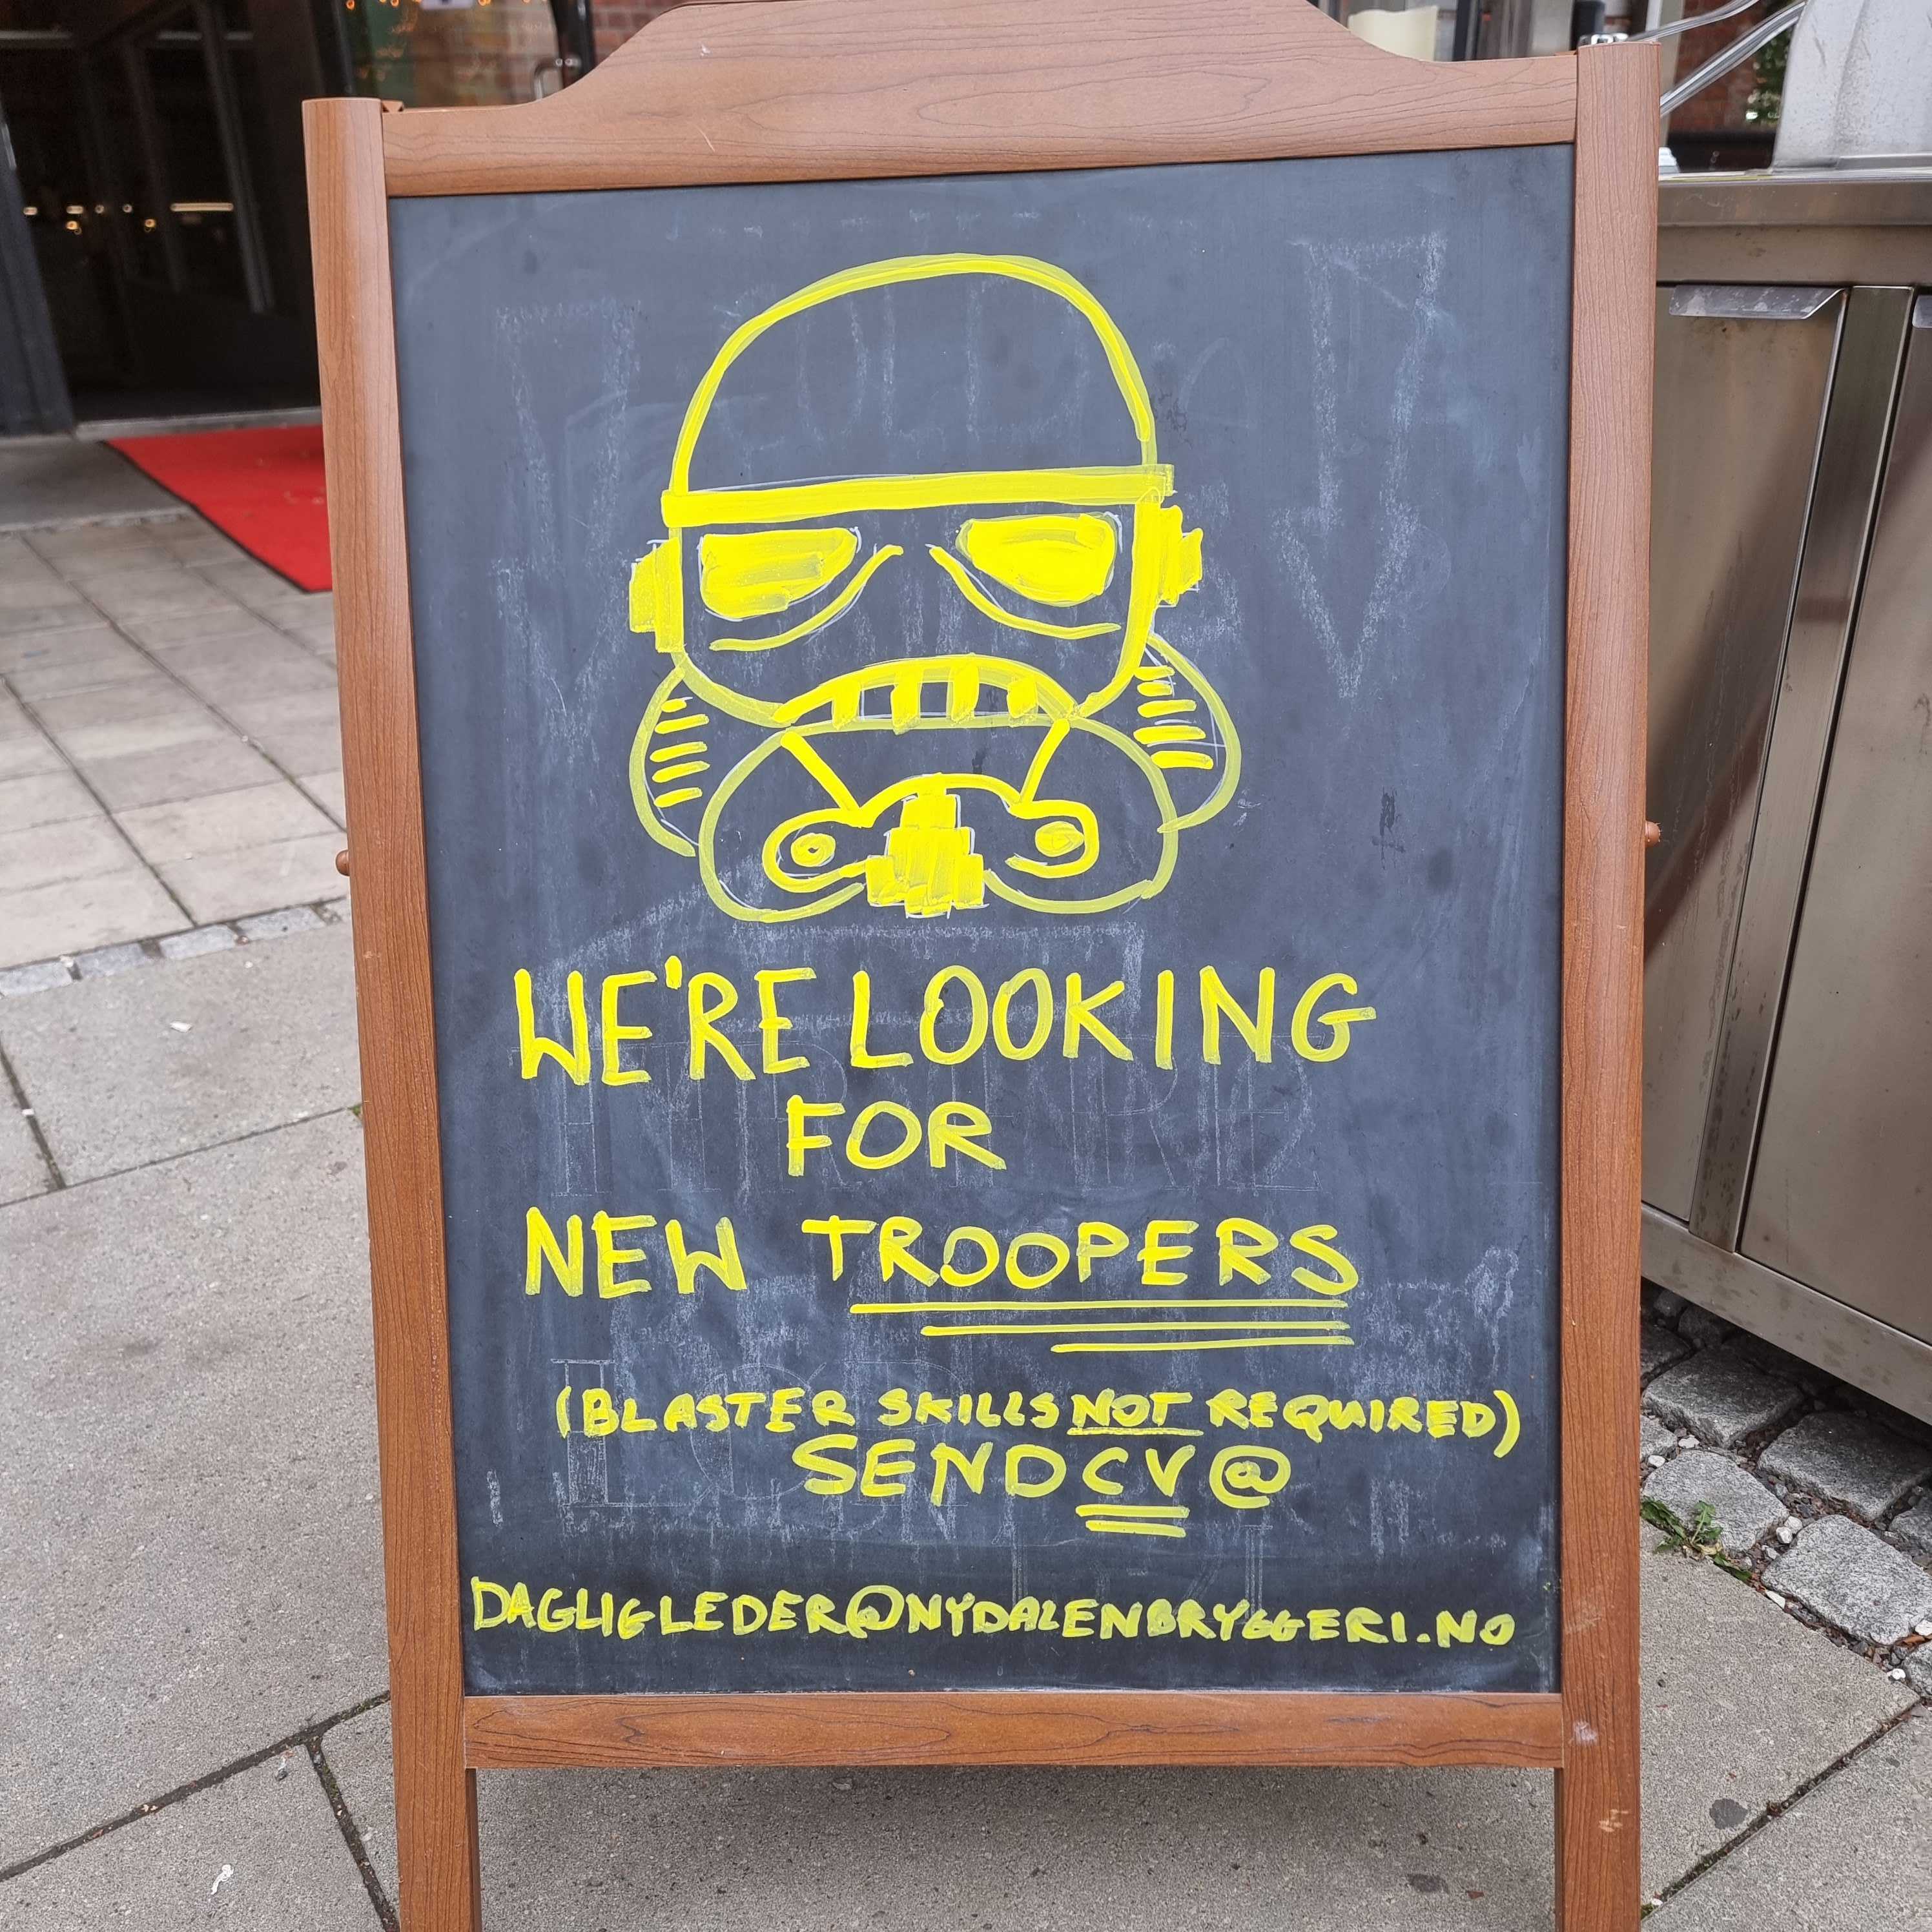 WE'RE LOOKING
FOR
NEW TROOPERS
(BLASTER SKILLS NOT REQUIRED)
SEND CV @
DAGLIGLEDER@NYDALENBRYGGERI.NO